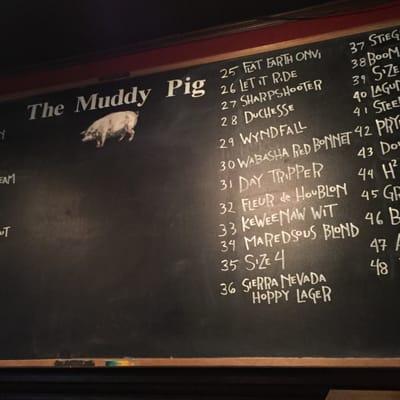 The Muddy Pig
EAM
25 FLAT EARTH ONVI
26 LET IT RIDE
27 SHARPSHOOTER
28 DUCHESSE
29 WYNDFALL
30 WABASHA RED BONNET
31 DAY TRIPPER
32 FLEUR de HOUBLON
33 KEWEENAW WIT
34 MAREDSOUS BLOND
35 SIZE 4
36 SIERRA NEVADA
HOPPY LAGER
37 STIEG
38 BOOM
39 SIZE
40 LAGU
41 STEE
42 PRY
43 DO
44 H2
45 GR
46 B
47
48